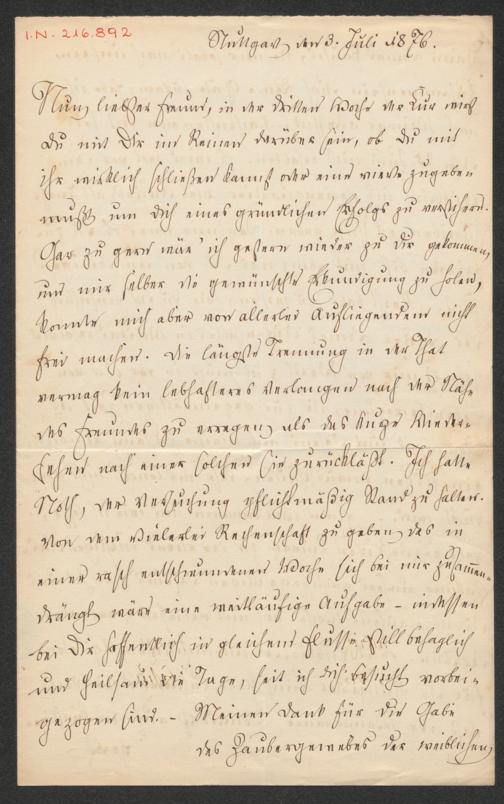 I.N. 216.892
Stuttgart, den 3. Juli 1876.
Nun, liebster Freund, in der dritten Woche der Kur wirst
Du mit Dir im Reinen darüber sein, ob Du mit
ihr wirklich schließen kannst oder eine vierte zugeben
mußt um Dich eines gründlichen Erfolgs zu versichern.
Gar zu gern wär' ich gestern wieder zu Dir gekommen,
um mir selber die gewünschte Erkundigung zu holen,
konnte mich aber von allerlei Aufliegendem nicht
frei machen. Die längste Trennung in der That
vermag kein lebhafteres Verlangen nach der Nähe
des Freundes zu erregen, als das kurze Wieder-
sehen nach einer solchen sie zurückläßt. Ich hatte
Noth, der Versuchung pflichtmäßig Stand zu halten.
Von dem Vielerlei Rechenschaft zu geben, das in
einer rasch entschwundenen Woche sich bei mir zusammen-
drängt wäre eine weitläufige Aufgabe – indessen
bei Dir hoffentlich in gleichem Flusse still behaglich
und heilsam die Tage, seit ich Dich besucht vorbei-
gezogen sind. – Meinen Dank für die Gabe
des Zaubergewebes der weiblichen,